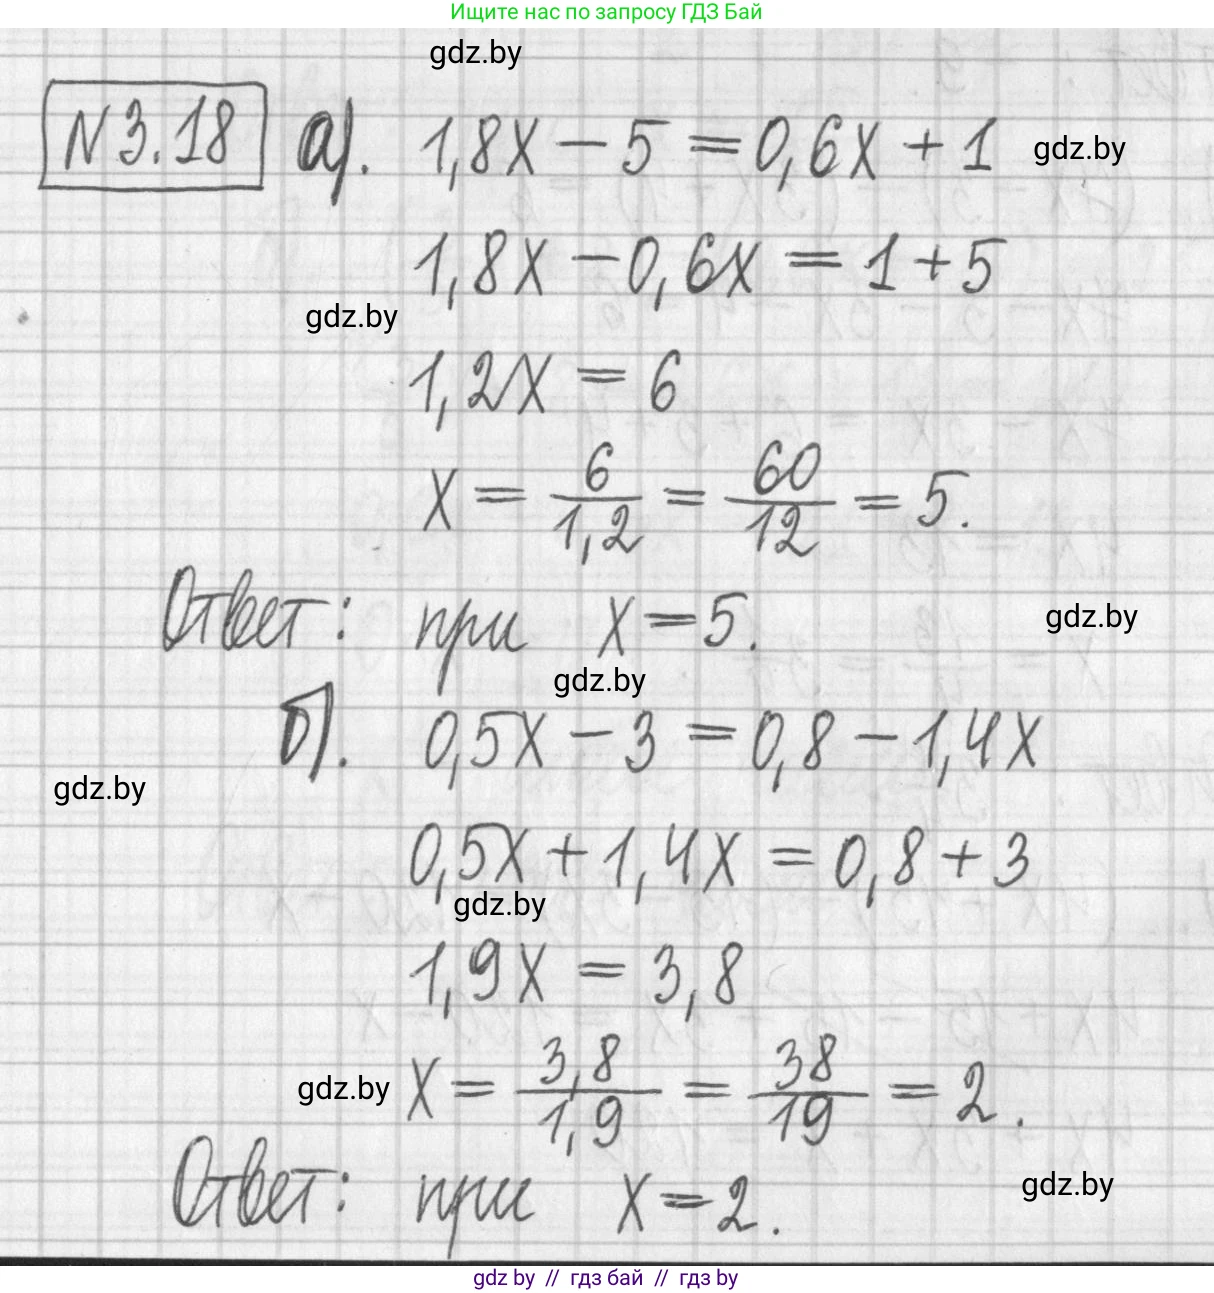 Ищите нас по запросу ГДЗ Бай
gdz.by
N 3.18 а). 1,8x - 5 = 0,6x + 1 gdz.by
1,8x - 0,6x = 1 + 5
gdz.by
1,2x = 6
x = 6/1,2 = 60/12 = 5.
Ответ: при x = 5. gdz.by
gdz.by
б). 0,5x - 3 = 0,8 - 1,4x
gdz.by
0,5x + 1,4x = 0,8 + 3
gdz.by
1,9x = 3,8
gdz.by x = 3,8/1,9 = 38/19 = 2.
Ответ: при x = 2. gdz.by
gdz by // гдз бай // гдз by